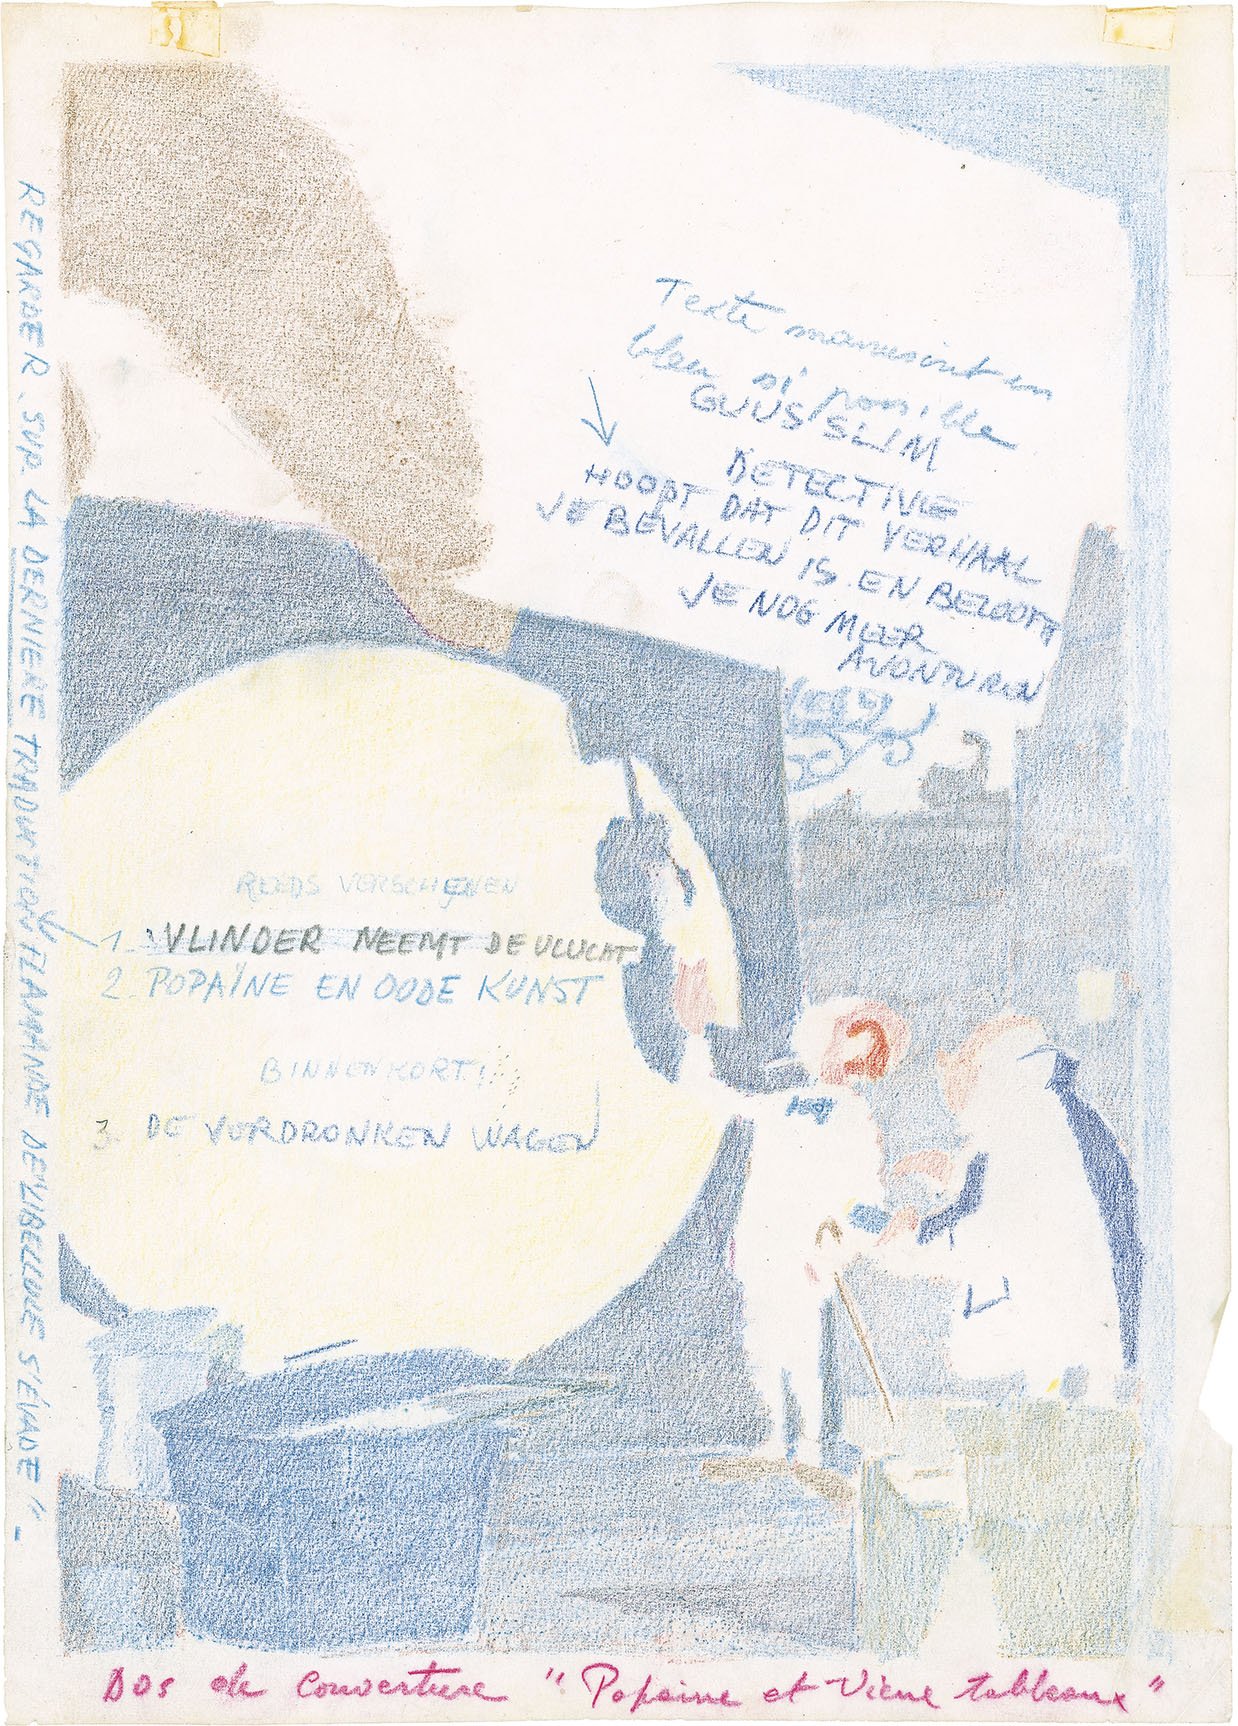 Texte manuscrit en
bleu si possible
GUUS SLIM
DETECTIVE
HOOPT DAT DIT VERHAAL
JE BEVALLEN IS EN BELOOFT
JE NOG MEER
AVONTUREN
REEDS VERSCHENEN
1. VLINDER NEEMT DE VLUCHT
2. POPAÏNE EN OUDE KUNST
BINNENKORT:
3. DE VERDRONKEN WAGEN
REGARDER SUR LA DERNIERE TRADUCTION FLAMANDE DE "LIBELLULE S'ÉVADE"_
Dos de couverture "Popaïne et Vieux tableaux"